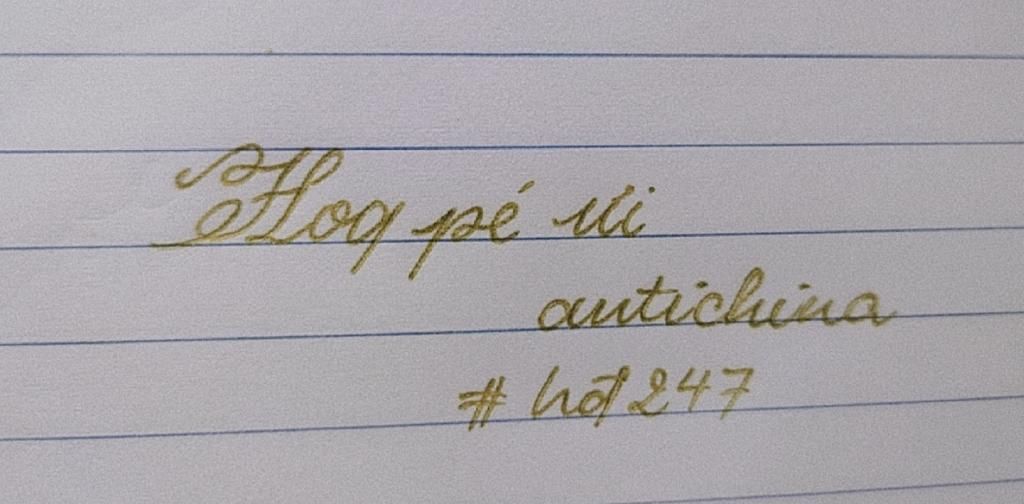 Hoq pé vi
antichina
# hót247